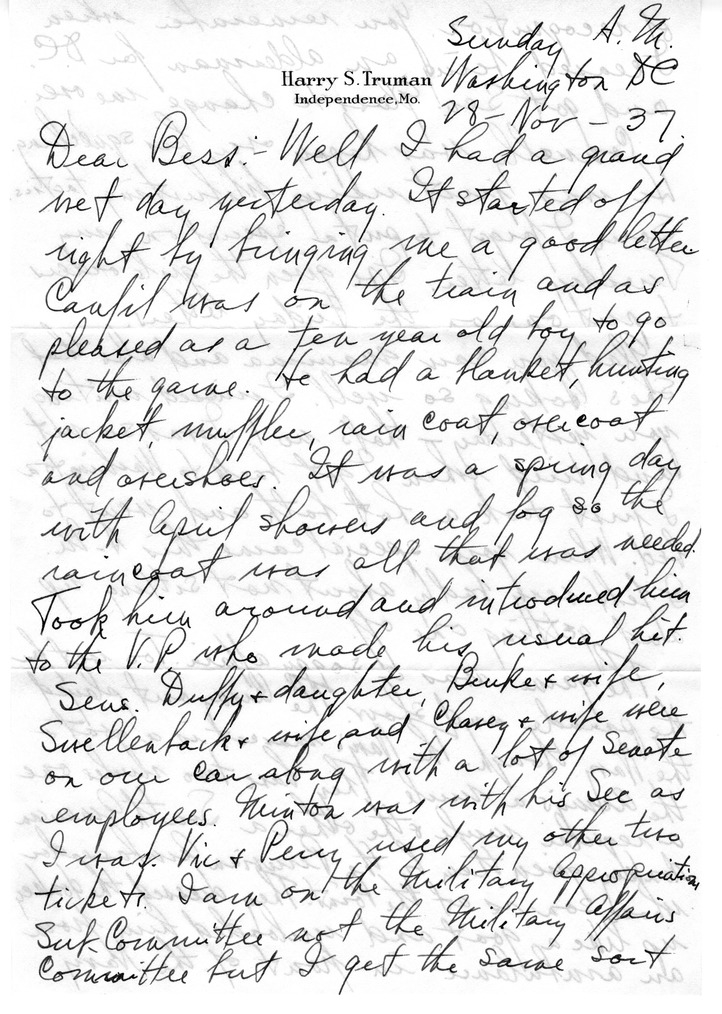 Sunday A.M.
Harry S. Truman
Independence, Mo.
Washington DC
28-Nov-37.
Dear Bess:- Well I had a grand
wet day yesterday. It started off
right by bringing me a good letter
Canfil was on the train and as
pleased as a ten year old boy to go
to the game. He had a blanket, hunting
jacket, muffler, rain coat, overcoat
and overshoes. It was a spring day
with April showers and fog so the
raincoat was all that was needed.
Took him around and introduced him
to the V.P. who made his usual hit.
Sens. Duffy & daughter, Burke & wife,
Swellenback & wife, and Chavez & wife were
on our car along with a lot of Senate
employees. Minton was with his Sec as
I was. Vic & Perry used my other two
tickets. I am on the Military Appropriation
Sub. Committee not the Military Affairs
Committee but I get the same sort